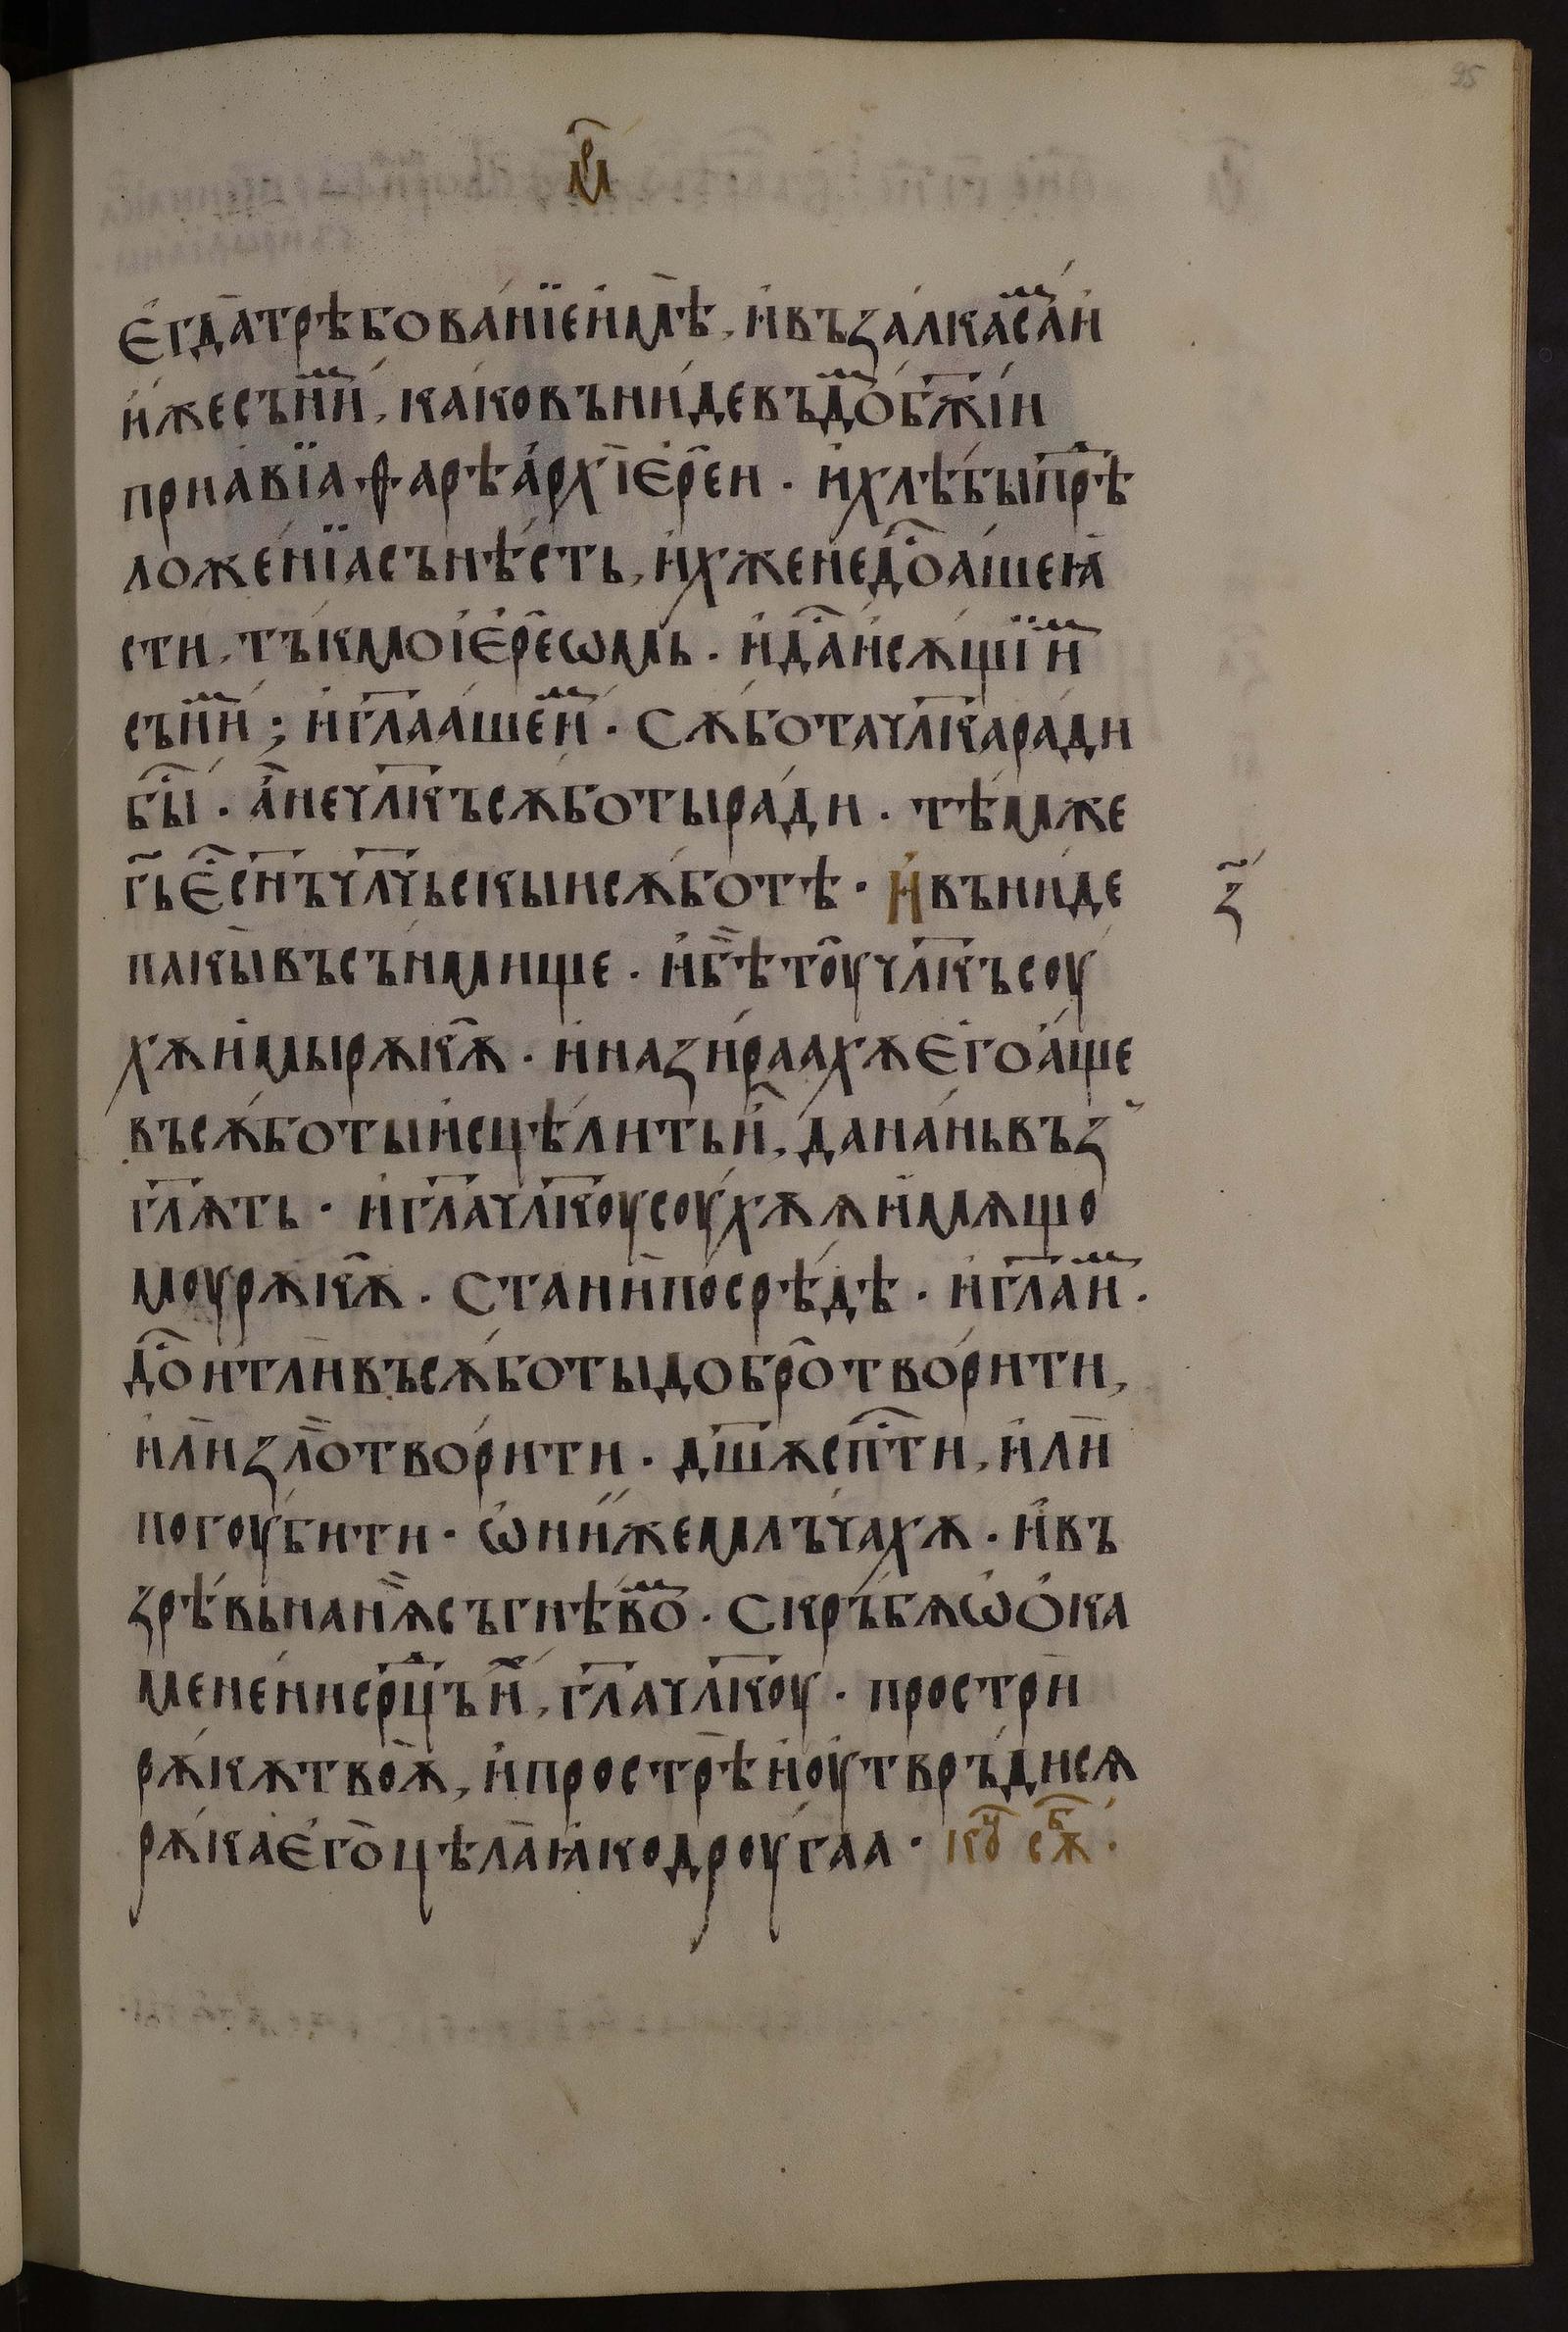 95
м҃р
Є҆гда̀трѣбова́нїеи҆мѣ̀, и҆въꙁалкасѧⷨ и҆
и҆жесъни́ⷨ, ка́ковъни́девъдоⷨ б҃жїи
приа҆вїаѳарѣа҆рхїе҆ре́и · и҆хлѣ́быпрⷣѣ
ложе́нїасънѣ́сть, и҆хженедⷭ҇оа́шеꙗ҆
сти, тъ́кмоі҆е҆ре́ѡмь · и҆да́и҆сѫщїиⷨ
съни́ⷨ ; и҆гл҃аа́шеиⷨ · Сѫ́ботачл҃кара́ди
бⷭ҇ы · а҆̀нечл҃късѫ́ботыра́ди · тѣ́мже
г҃ье҆́с҃нъчл҃чьскыисѫ́ботѣ · И҆въни́де
ꙁ҃
пакы̀въсъ́нмище · и҆бѣ̀тоу̑чл҃късоу
хѫи҆мырѫкѫ̑ · и҆наꙁи́раахѫе҆го̀а́ще
въсѫ́ботыи҆сцѣ́литьи҆̀, да́на́ньвъꙁ
гл҃ѫть · и҆гл҃ачл҃коусоу́хѫѫи҆мѫщо
моурѫкѫ̑ · Стани̑посрѣ́дѣ · и҆гл҃аиⷨ ·
дⷭ҇оитлѝвъсѫ́ботыдобро̑твори́ти,
и҆лѝꙁло̀твори́ти · дш҃ѫсп҃ⷭти, и҆лѝ
погоу́бити · ѡ҆ни́жемлъча́хѫ · и҆въ
ꙁрѣ́вьнанѧ̀съгнѣ́воⷨ · Скръбѧѡ҆ѻ҆ка
мене́нисрⷣцъи́ⷯ, гл҃ачл҃коу · прострѝ
рѫ́кѫтвоѫ̀, и҆прострѣ̀и҆оу҆твръ́дисѧ
рѫ́кае҆го̀цѣла̀ꙗ҆кодроу́гаа · коⷰ҇ сѫⷠ ·